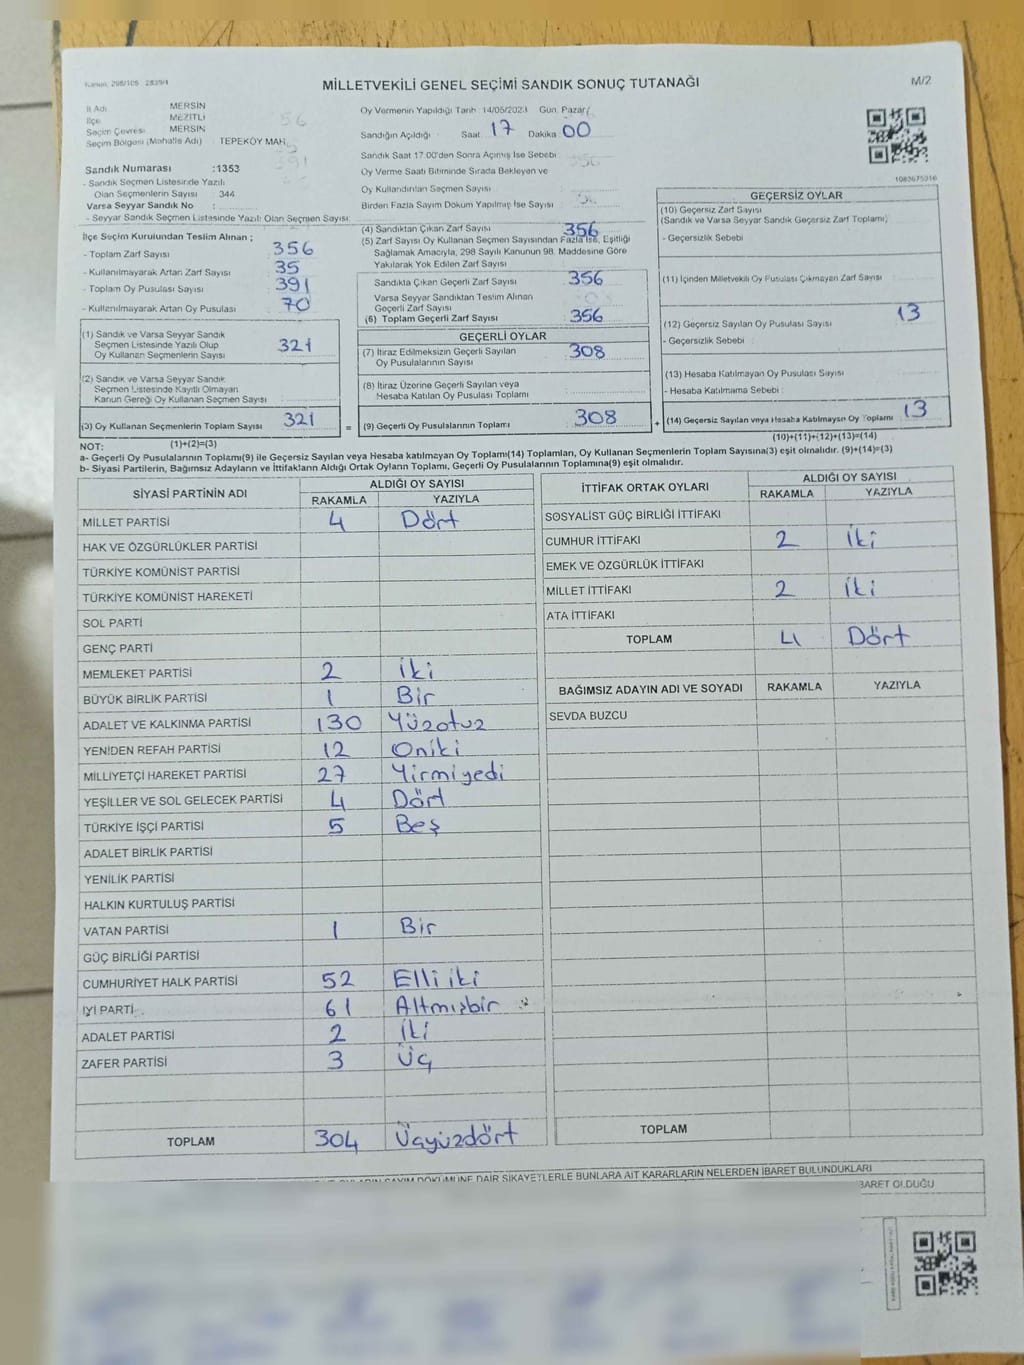 Kanun, 298/105 2839/4
MİLLETVEKİLİ GENEL SEÇİMİ SANDIK SONUÇ TUTANAĞI
M/2
İl Adı MERSİN
İlçe MEZİTLİ
Seçim Çevresi MERSİN
Seçim Bölgesi (Mahalle Adı) : TEPEKÖY MAH.
Sandık Numarası :1353
- Sandık Seçmen Listesinde Yazılı
Olan Seçmenlerin Sayısı : 344
Varsa Seyyar Sandık No :
- Seyyar Sandık Seçmen Listesinde Yazılı Olan Seçmen Sayısı:
Oy Vermenin Yapıldığı Tarih :14/05/2023 Gün: Pazar
Sandığın Açıldığı Saat 17 Dakika 00
Sandık Saat 17:00'den Sonra Açılmış İse Sebebi
Oy Verme Saati Bitiminde Sırada Bekleyen ve
Oy Kullandırılan Seçmen Sayısı
Birden Fazla Sayım Döküm Yapılmış İse Sayısı
1083675316
İlçe Seçim Kurulundan Teslim Alınan ;
- Toplam Zarf Sayısı 356
- Kullanılmayarak Artan Zarf Sayısı 35
- Toplam Oy Pusulası Sayısı 391
- Kullanılmayarak Artan Oy Pusulası 70
(1) Sandık ve Varsa Seyyar Sandık
Seçmen Listesinde Yazılı Olup
Oy Kullanan Seçmenlerin Sayısı 321
(2) Sandık ve Varsa Seyyar Sandık
Seçmen Listesinde Kayıtlı Olmayan
Kanun Gereği Oy Kullanan Seçmen Sayısı
(3) Oy Kullanan Seçmenlerin Toplam Sayısı 321
(1)+(2)=(3)
(4) Sandıktan Çıkan Zarf Sayısı 356
(5) Zarf Sayısı Oy Kullanan Seçmen Sayısından Fazla İse, Eşitliği
Sağlamak Amacıyla, 298 Sayılı Kanunun 98. Maddesine Göre
Yakılarak Yok Edilen Zarf Sayısı
Sandıkta Çıkan Geçerli Zarf Sayısı 356
Varsa Seyyar Sandıktan Teslim Alınan
Geçerli Zarf Sayısı
(6) Toplam Geçerli Zarf Sayısı 356
GEÇERLİ OYLAR
(7) İtiraz Edilmeksizin Geçerli Sayılan
Oy Pusulalarının Sayısı 308
(8) İtiraz Üzerine Geçerli Sayılan veya
Hesaba Katılan Oy Pusulası Toplamı
= (9) Geçerli Oy Pusulalarının Toplamı 308
GEÇERSİZ OYLAR
(10) Geçersiz Zarf Sayısı
(Sandık ve Varsa Seyyar Sandık Geçersiz Zarf Toplamı)
- Geçersizlik Sebebi
(11) İçinden Milletvekili Oy Pusulası Çıkmayan Zarf Sayısı
(12) Geçersiz Sayılan Oy Pusulası Sayısı 13
- Geçersizlik Sebebi :
(13) Hesaba Katılmayan Oy Pusulası Sayısı
- Hesaba Katılmama Sebebi :
+ (14) Geçersiz Sayılan veya Hesaba Katılmayan Oy Toplamı 13
(10)+(11)+(12)+(13)=(14)
NOT:
a- Geçerli Oy Pusulalarının Toplamı(9) ile Geçersiz Sayılan veya Hesaba katılmayan Oy Toplamı(14) Toplamları, Oy Kullanan Seçmenlerin Toplam Sayısına(3) eşit olmalıdır. (9)+(14)=(3)
b- Siyasi Partilerin, Bağımsız Adayların ve İttifakların Aldığı Ortak Oyların Toplamı, Geçerli Oy Pusulalarının Toplamına(9) eşit olmalıdır.
SİYASİ PARTİNİN ADI ALDIĞI OY SAYISI
RAKAMLA YAZIYLA
MİLLET PARTİSİ 4 Dört
HAK VE ÖZGÜRLÜKLER PARTİSİ
TÜRKİYE KOMÜNİST PARTİSİ
TÜRKİYE KOMÜNİST HAREKETİ
SOL PARTİ
GENÇ PARTİ
MEMLEKET PARTİSİ 2 İki
BÜYÜK BİRLİK PARTİSİ 1 Bir
ADALET VE KALKINMA PARTİSİ 130 Yüzotuz
YENİDEN REFAH PARTİSİ 12 Oniki
MİLLİYETÇİ HAREKET PARTİSİ 27 Yirmiyedi
YEŞİLLER VE SOL GELECEK PARTİSİ 4 Dört
TÜRKİYE İŞÇİ PARTİSİ 5 Beş
ADALET BİRLİK PARTİSİ
YENİLİK PARTİSİ
HALKIN KURTULUŞ PARTİSİ
VATAN PARTİSİ 1 Bir
GÜÇ BİRLİĞİ PARTİSİ
CUMHURİYET HALK PARTİSİ 52 Elli iki
İYİ PARTİ 61 Altmışbir
ADALET PARTİSİ 2 İki
ZAFER PARTİSİ 3 Üç
TOPLAM 304 Üçyüzdört
İTTİFAK ORTAK OYLARI ALDIĞI OY SAYISI
RAKAMLA YAZIYLA
SOSYALİST GÜÇ BİRLİĞİ İTTİFAKI
CUMHUR İTTİFAKI 2 İki
EMEK VE ÖZGÜRLÜK İTTİFAKI
MİLLET İTTİFAKI 2 İki
ATA İTTİFAKI
TOPLAM 4 Dört
BAĞIMSIZ ADAYIN ADI VE SOYADI RAKAMLA YAZIYLA
SEVDA BUZCU
TOPLAM
SAYIM DÖKÜMÜNE DAİR ŞİKAYETLERLE BUNLARA AİT KARARLARIN NELERDEN İBARET BULUNDUKLARI
İBARET OLDUĞU